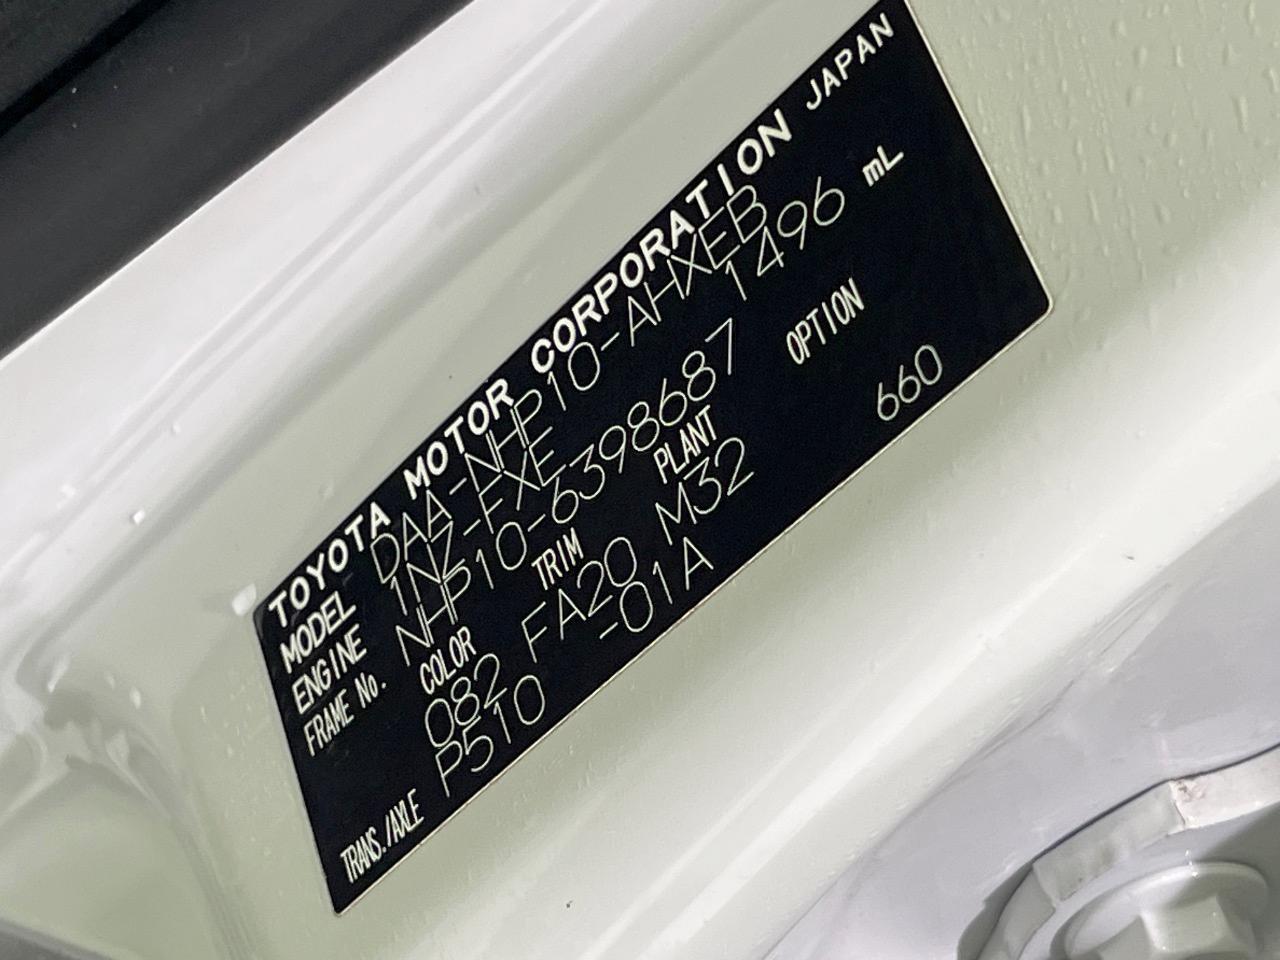 TOYOTA MOTOR CORPORATION JAPAN
MODEL DAA-NHP10-AHXEB
ENGINE 1NZ-FXE 1496 mL
FRAME No. NHP10-6398687
COLOR TRIM PLANT OPTION
082 FA20 M32 660
TRANS./AXLE P510 -01A